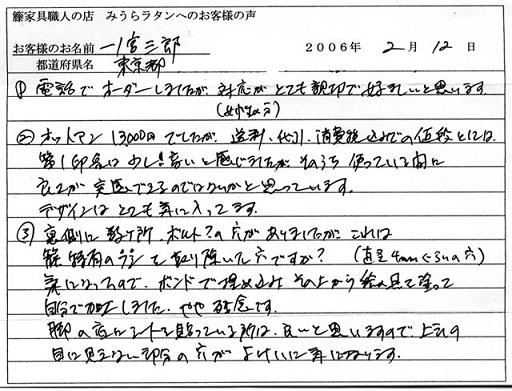 籐家具職人の店　みうらラタンへのお客様の声
お客様のお名前 一ノ宮三郎 2006年 2月 12日
都道府県名 東京都
① 電話でオーダーしましたが 対応がとても親切で好ましいと思います
(女性の方)
② オットマン 13000円でしたが、送料、代引、消費税込みでの値段としては
第1印象は少し高いと感じましたが そのうち使っている間に
良さが実感できるのではないかと思っています。
デザインはとても気に入ってます。
③ 裏側に数ヶ所、ボルト?の穴がありましたが これは
籐特有の を取り除いた穴ですか? (直径4mmぐらいの穴)
気になったので、ボンドで埋め込み その上から絵の具で塗って
自分で加工しました。やや残念です。
脚の底にシートを貼っている所は、良いと思いますので、上記の
目に見えない部分の穴がよけいに気になります。